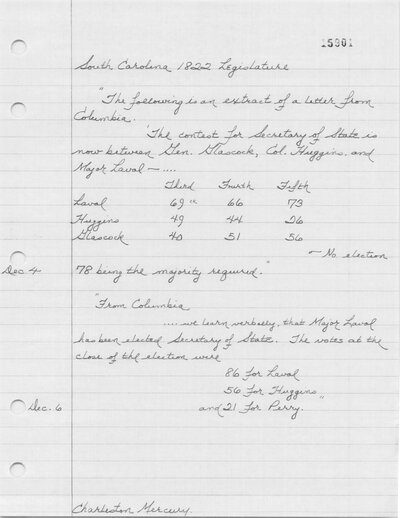 15301
South Carolina 1822 Legislature
"The following is an extract of a letter from
Columbia.
'The contest for Secretary of State is
now between Gen. Glascock, Col. Huggins, and
Major Laval — ....
Third Fourth Fifth
Laval 69 66 73
Huggins 49 44 26
Glascock 40 51 56
— No election
Dec 4 78 being the majority required."
"From Columbia
.... we learn verbally, that Major Laval
has been elected Secretary of State. The votes at the
close of the election were
86 for Laval
56 for Huggins
Dec. 6 and 21 for Perry."
Charleston Mercury.